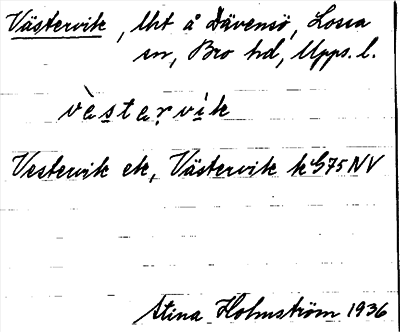 Västervik, lht å Dävensö, Lossa
sn, Bro hd, Upps. l.
vèstervik
Vestervik ek, Västervik k G75NV
Stina Holmström 1936